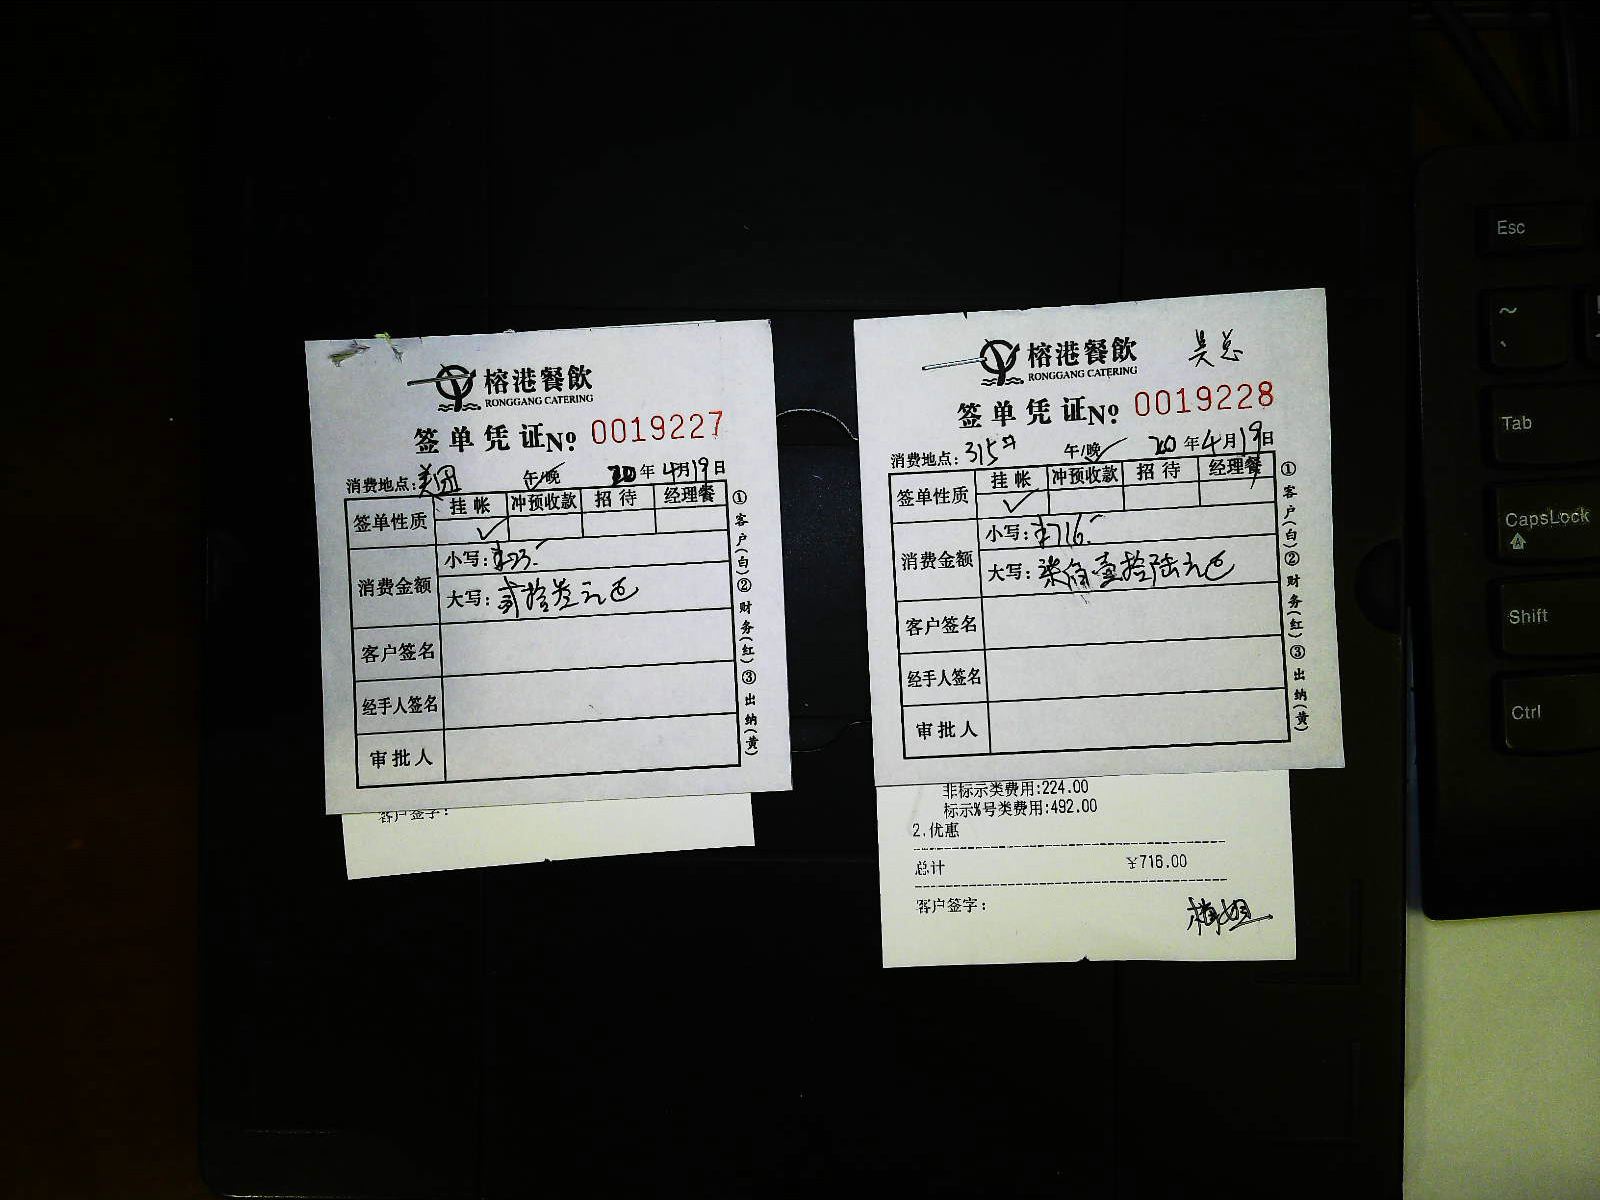 榕港餐飲
RONGGANG CATERING
签单凭证No. 0019227
消费地点:美团 午/晚 20年4月19日
签单性质 挂帐 冲预收款 招待 经理餐
✓
消费金额 小写:¥23.-
大写:贰拾叁元
客户签名
经手人签名
审批人
①客户(白)②财务(红)③出纳(黄)
客户签字:
吴总
榕港餐飲
RONGGANG CATERING
签单凭证No. 0019228
消费地点:315 午/晚 20年4月19日
签单性质 挂帐 冲预收款 招待 经理餐
✓
消费金额 小写:¥716.-
大写:柒佰壹拾陆元
客户签名
经手人签名
审批人
①客户(白)②财务(红)③出纳(黄)
非标示类费用:224.00
标示%号类费用:492.00
2.优惠
总计 ¥716.00
客户签字: 梅姐
Esc
~
Tab
CapsLock
Shift
Ctrl